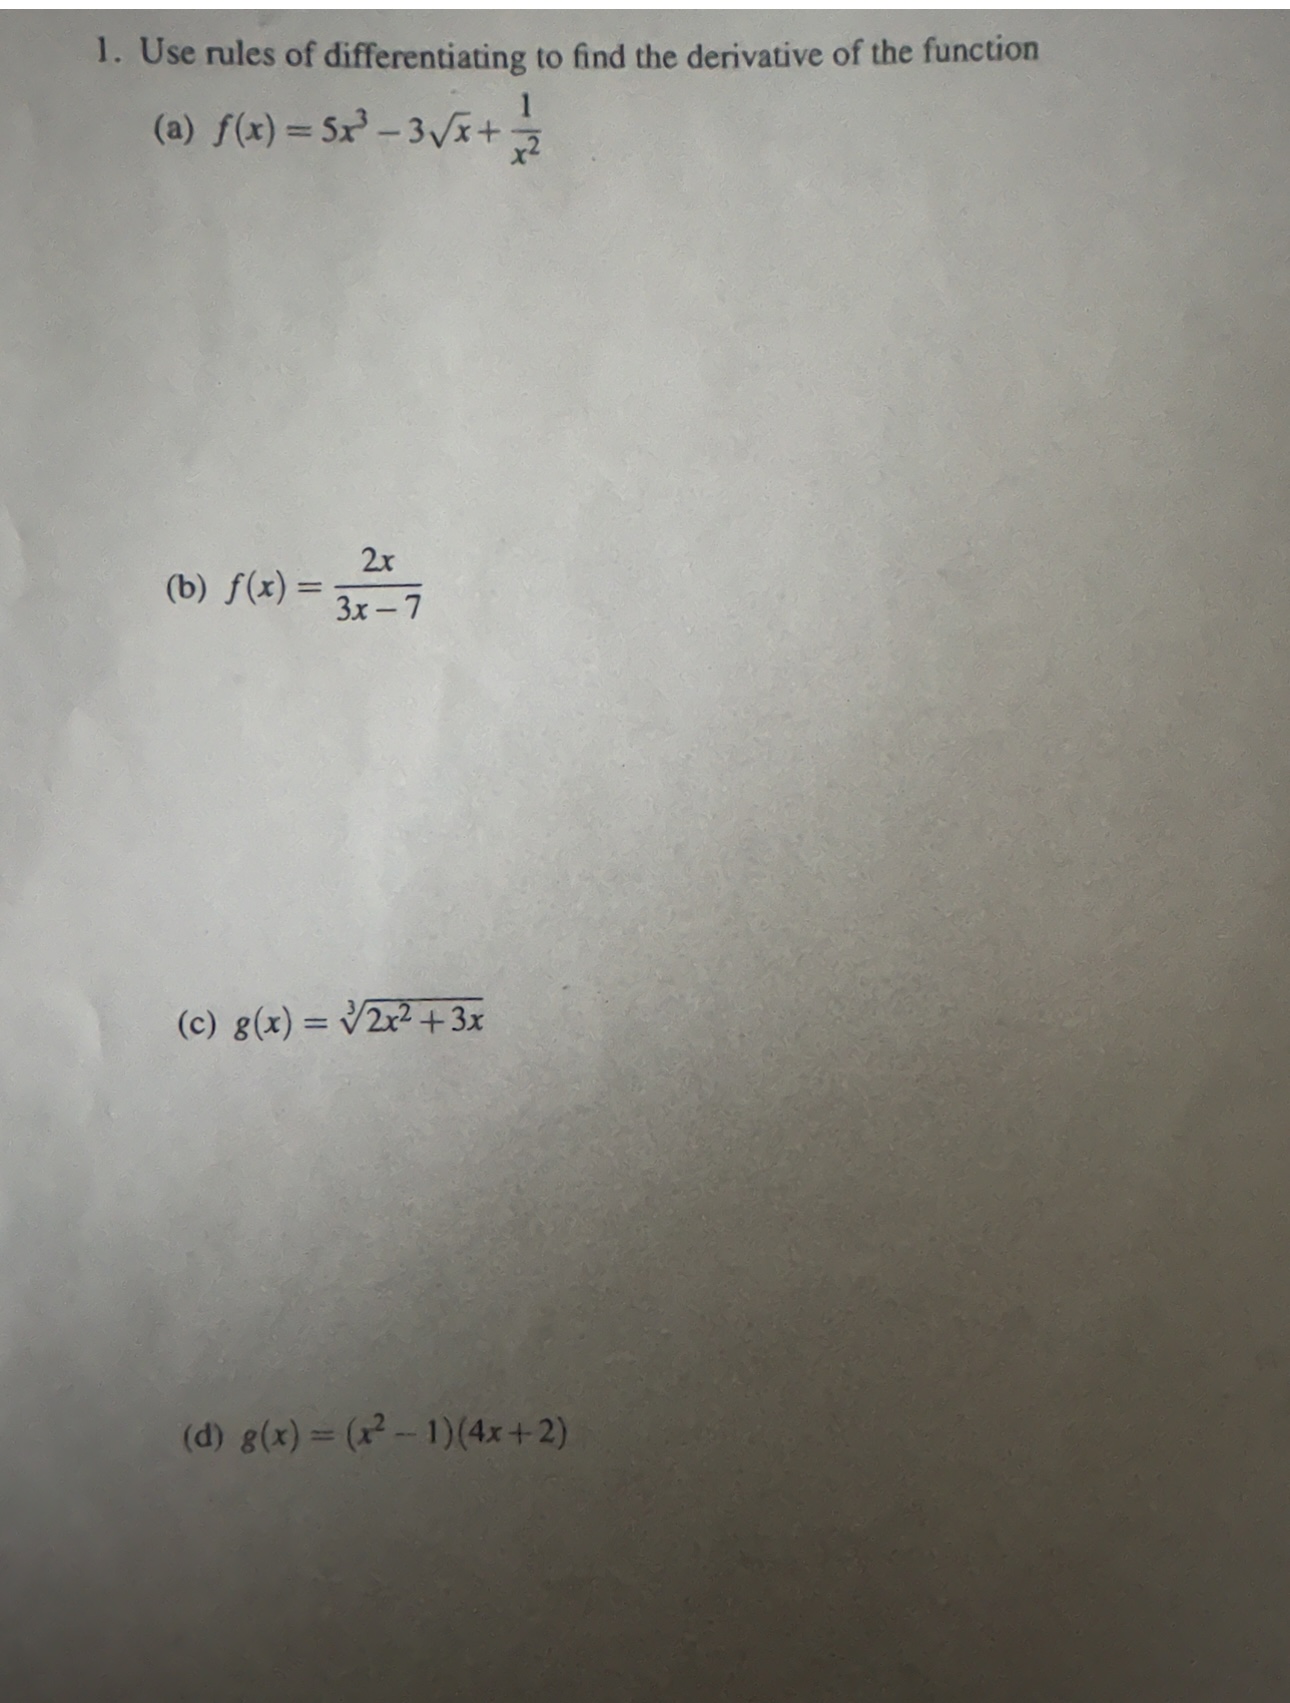 1. Use rules of differentiating to find the derivative of the function
(a) f(x) = 5x³ − 3√x + 1/x²
(b) f(x) = 2x/(3x − 7)
(c) g(x) = ∛(2x² + 3x)
(d) g(x) = (x² − 1)(4x + 2)